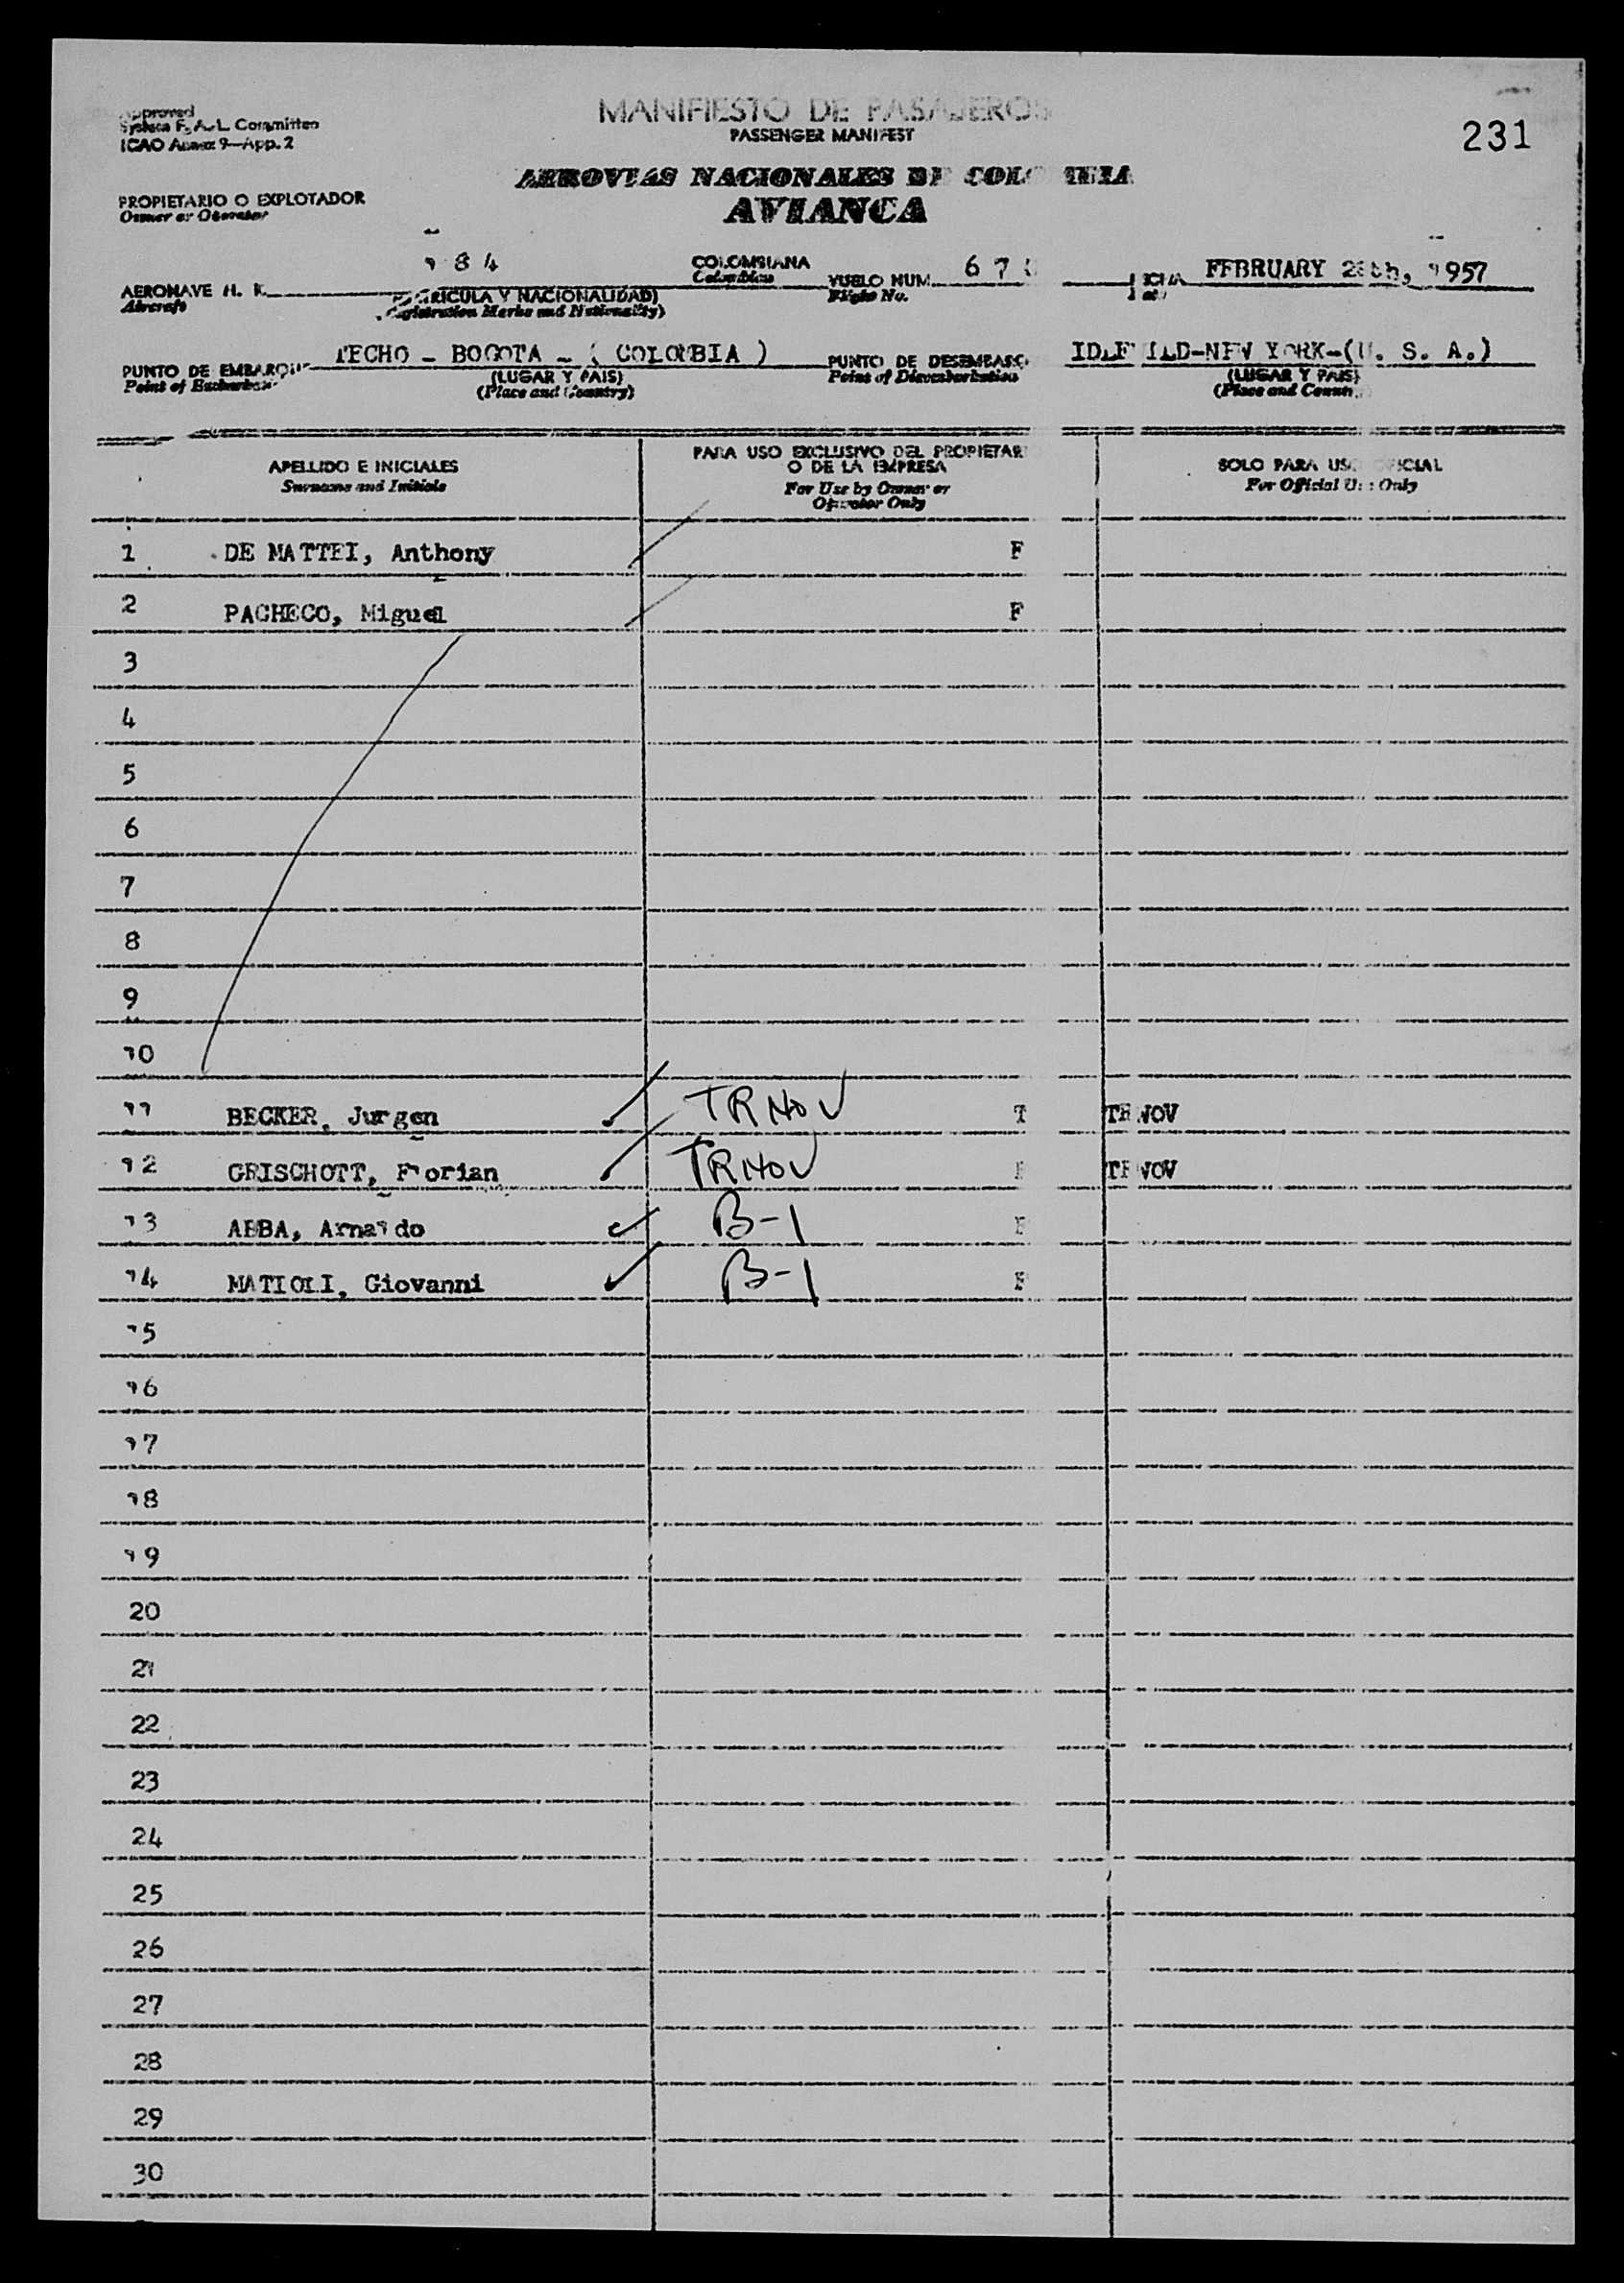 MANIFIESTO DE PASAJEROS
PASSENGER MANIFEST
231
Approved
System F. A. L. Committee
ICAO Annex 9—App. 2
AEROVIAS NACIONALES DE COLOMBIA
AVIANCA
PROPIETARIO O EXPLOTADOR
Owner or Operator
AERONAVE H. K. 184 COLOMBIANA VUELO NUM. 67 FECHA FEBRUARY 28th, 1957
Aircraft (MATRICULA Y NACIONALIDAD) Colombian Flight No.
(Registration Marks and Nationality)
PUNTO DE EMBARQUE TECHO - BOGOTA - ( COLOMBIA ) PUNTO DE DESEMBARCO IDLEWILD-NEW YORK-(U. S. A.)
Point of Embarkation (LUGAR Y PAIS) Point of Disembarkation (LUGAR Y PAIS)
(Place and Country) (Place and Country)
APELLIDO E INICIALES
Surname and Initials
PARA USO EXCLUSIVO DEL PROPIETARIO
O DE LA EMPRESA
For Use by Owner or
Operator Only
SOLO PARA USO OFICIAL
For Official Use Only
1 DE MATTEI, Anthony F
2 PACHECO, Miguel F
3
4
5
6
7
8
9
10
11 BECKER, Jurgen TRNOV T TRNOV
12 GRISCHOTT, Florian TRNOV F TRNOV
13 ABBA, Arnaldo B-1 F
14 MATIOLI, Giovanni B-1 F
15
16
17
18
19
20
21
22
23
24
25
26
27
28
29
30